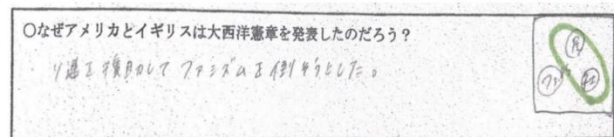 ○なぜアメリカとイギリスは大西洋憲章を発表したのだろう？
ソ連を援助してファシズムを倒そうとした。
民
ファ
社